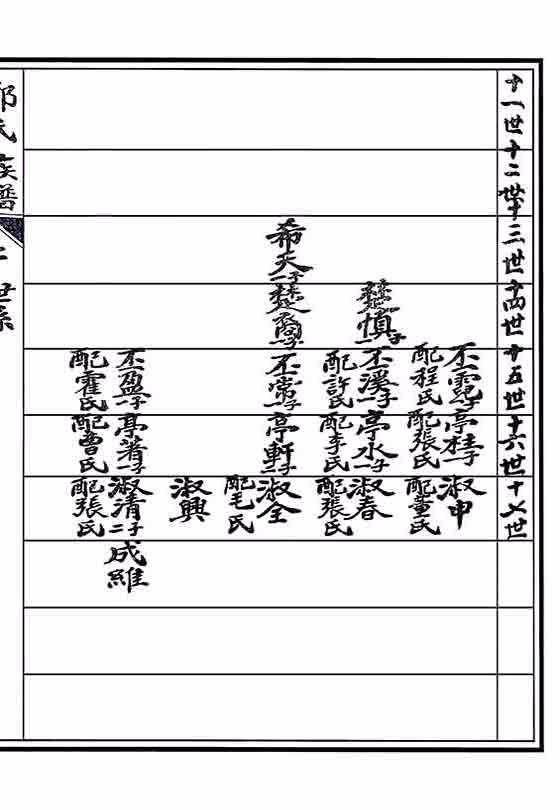 十一世 十二世 十三世 十四世 十五世 十六世 十七世
丕霓子 亭桂子 淑申
配程氏 配張氏 配董氏
楚慎子 丕溪一子 亭水一子 淑春
配許氏 配李氏 配張氏
希天一子 楚裔一子 丕常一子 亭軒二子 淑全
配毛氏
淑興
丕盈一子 亭著一子 淑清二子 成維
配霍氏 配曹氏 配張氏
氏族譜 世系